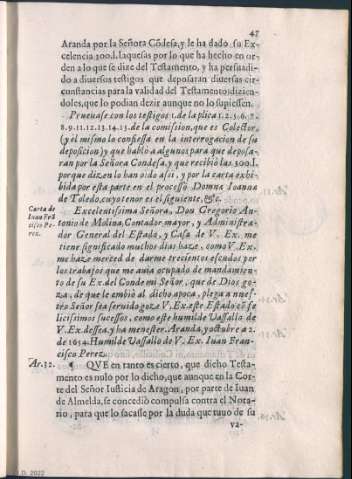 47
Aranda por la Señora Cõdesa, y le ha dado su Ex-
celencia 300.l. laquesas por lo que ha hecho en or-
den a lo que se dize del Testamento, y ha persuadi-
do a diuersos testigos que deposaran diuersas cir-
cunstancias para la validad del Testamento dizien-
doles, que lo podian dezir aunque no lo supiessen.
Prueuase con los testigos 1. de la plica 1.2.5.6.7.
8.9.11.12.13.14.15. de la comission, que es Colector,
(y èl mismo lo confiessa en la interrogacion de su
deposicion) y que hablò a algunos para que deposa-
ran por la Señora Condesa, y que recibiò las 300.l.
porque dizen lo han oido assi, y por la carta exhi-
bida por esta parte en el processo Domnæ Ioannæ
de Toledo, cuyo tenor es el siguiente, &c.
Carta de
Iuan Frã
cisco Pe-
rez.
Excelentissima Señora, Don Gregorio An-
tonio de Molina, Contador mayor, y Administra-
dor General del Estado, y Casa de V. Ex. me
tiene significado muchos dias haze, como V. Ex.
me haze merced de darme trecientos escudos por
los trabajos que me auia ocupado de mandamien-
to de su Ex. del Conde mi Señor, que de Dios go-
za, de que le embiè al dicho apoca, plega a nues-
tro Señor sea seruido goze V. Ex. este Estado cõ fe
licissimos sucessos, como este humilde Vassallo de
V. Ex. dessea, y ha menester. Aranda, y octubre a 2.
de 1654. Humilde Vassallo de V. Ex. Iuan Fran-
cisco Perez.
Ar. 32.
¶ QVE en tanto es cierto, que dicho Testa-
mento es nulo por lo dicho, que aunque en la Cor-
te del Señor Iusticia de Aragon, por parte de Iuan
de Almelda, se concediò compulsa contra el Nota-
rio, para que lo sacasse por la duda que tuuo de su
va-
D. 2022